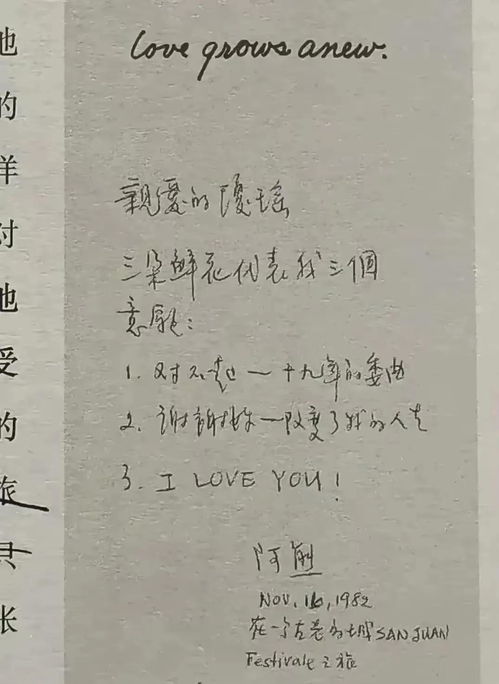 Love grows anew.
親愛的瓊瑤
三朵鮮花代表我三個
意願:
1. 对不起—十九年的委曲
2. 謝謝妳—改变了我的人生
3. I LOVE YOU!
阿
NOV. 16, 1982
在一个古老的城 SAN JUAN
Festivale 之旅